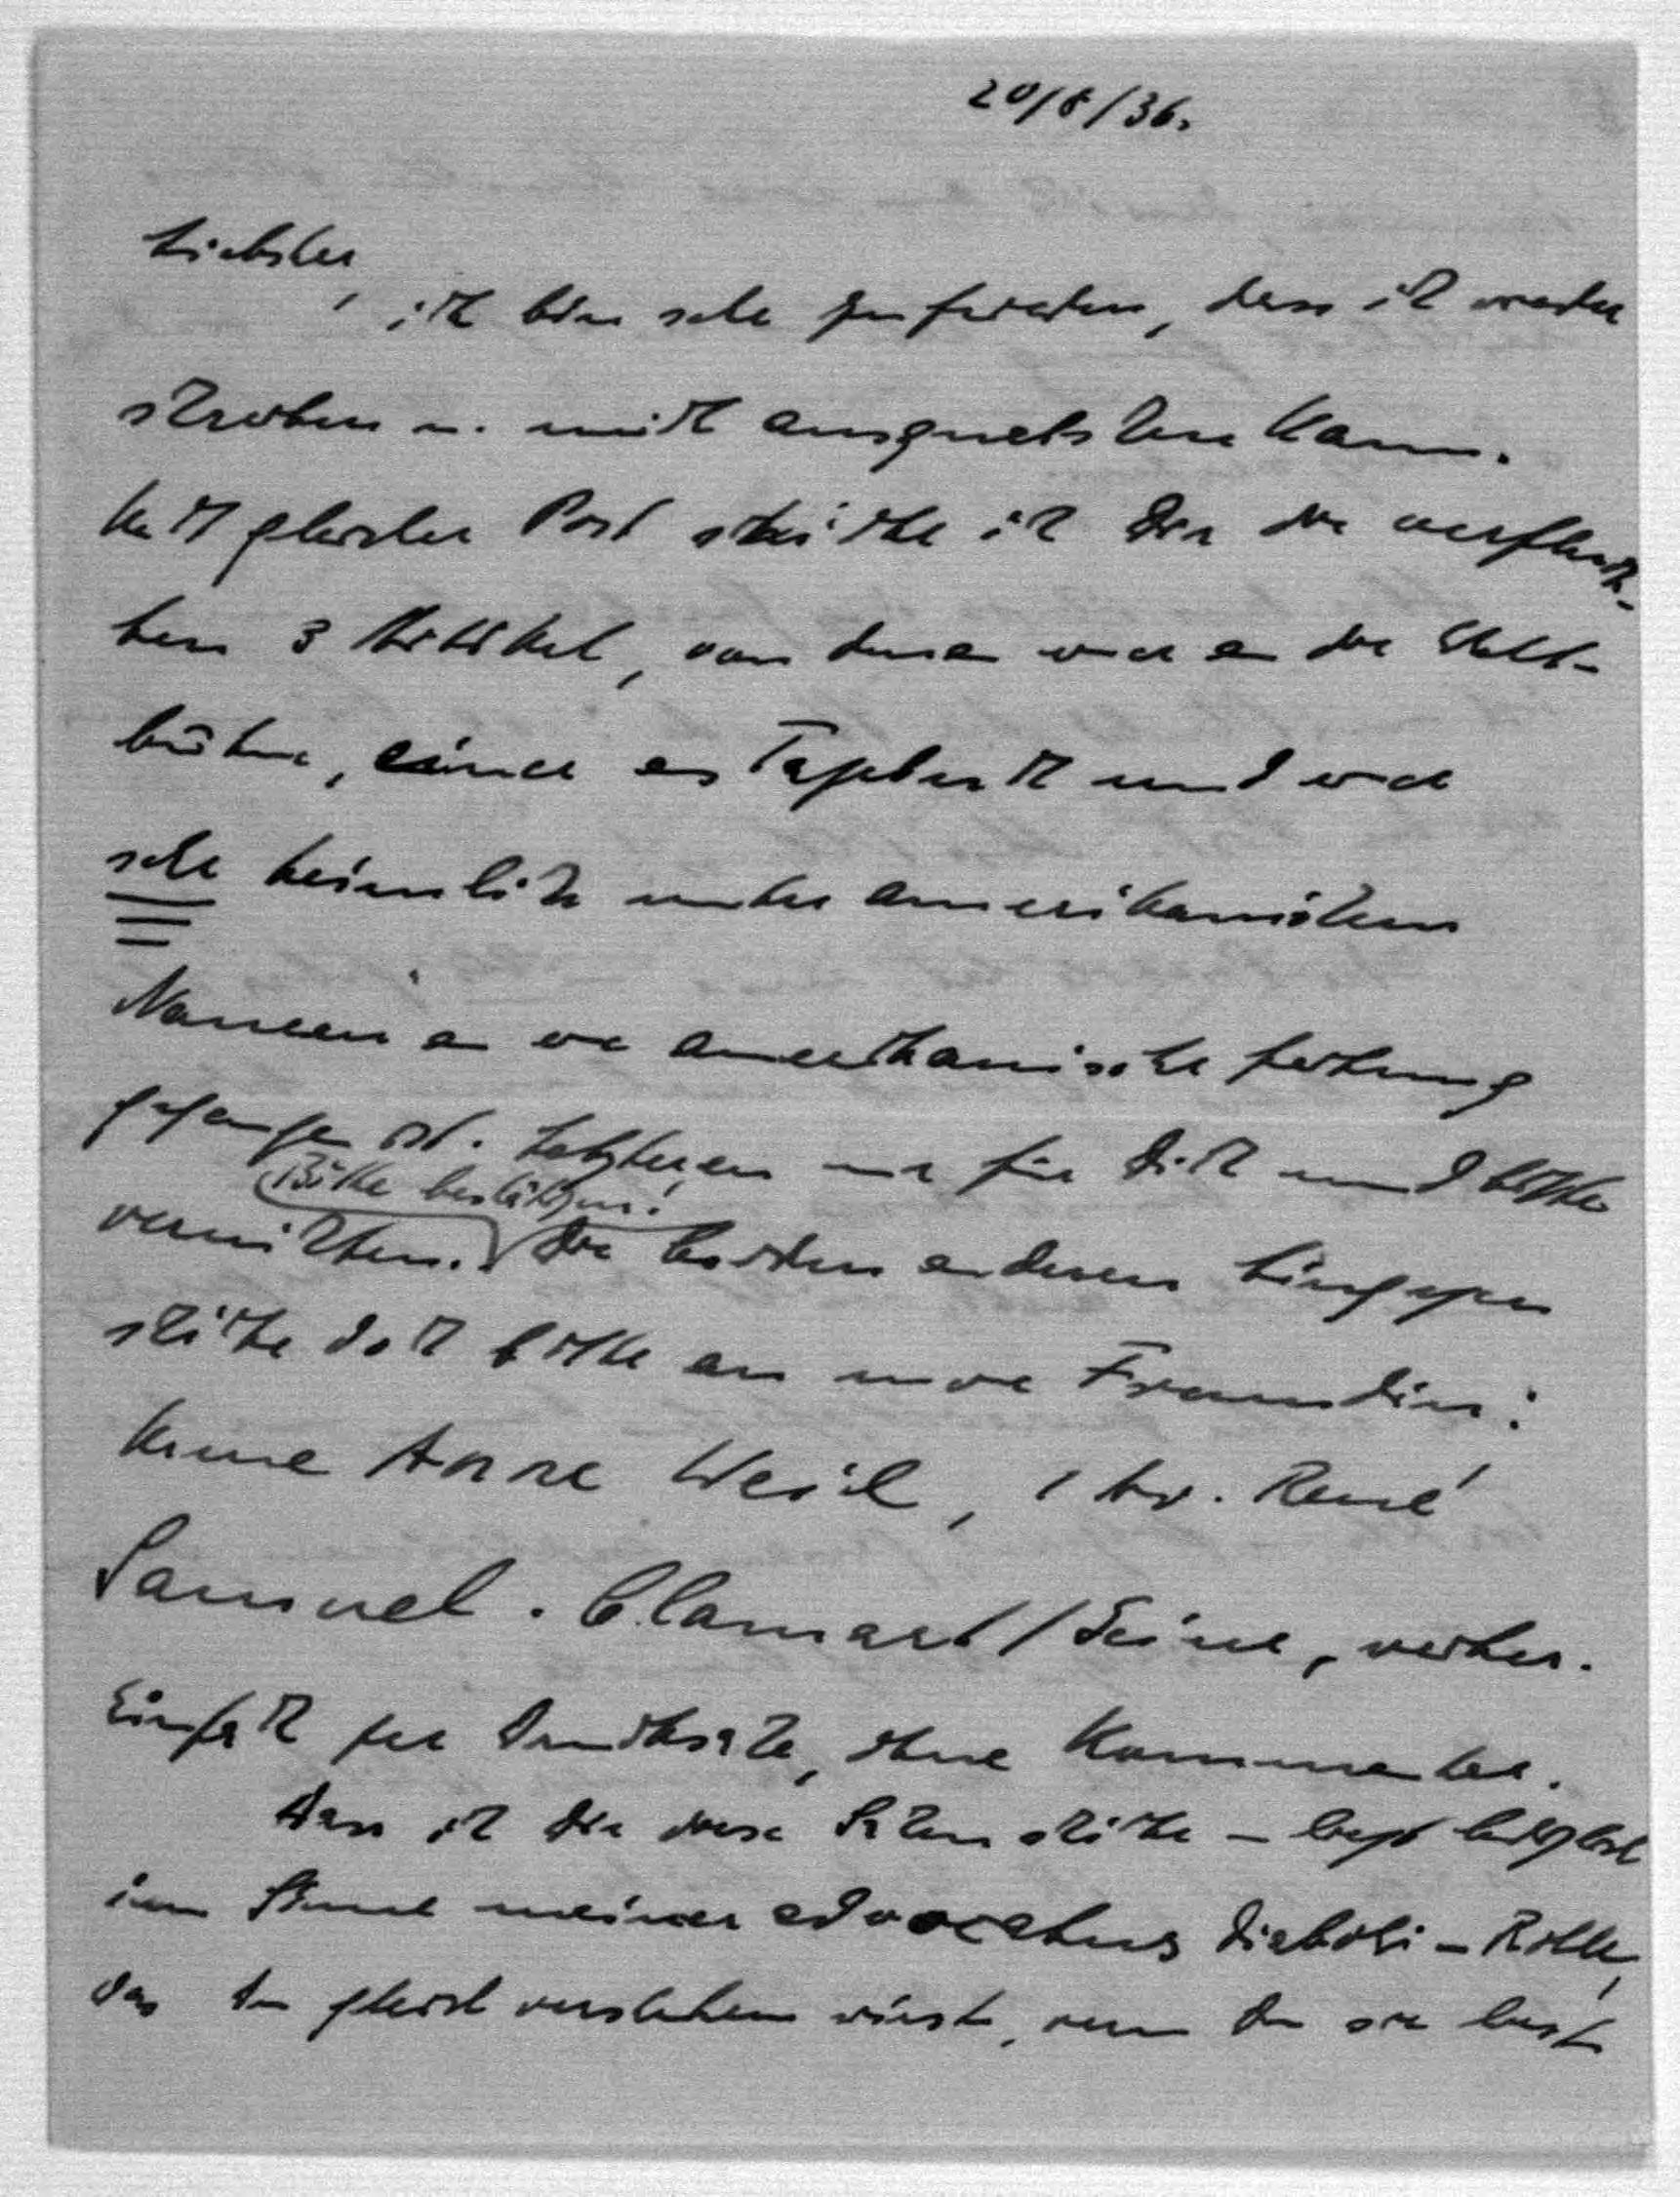 20/8/36.
Liebster,
ich bin sehr zufrieden, dass ich wieder
schreiben u. mich ausquatschen kann.
Mit gleicher Post schicke ich Dir die verfluch-
ten 3 Artikel, von denen einer an die Welt-
bühne, einer ans Tagebuch und einer
sehr heimlich unter amerikanischem
Namen an eine amerikanische Zeitung
gegangen ist. Letzteren nur für Dich und bitte
(Bitte bestätigen!
vernichten. Die beiden anderen hingegen
schicke doch bitte an meine Freundin:
Mme Anne Weil, 1 Av. René
Samuel. Clamart/Seine, weiter.
Einfach per Drucksache, ohne Kommentar.
Dass ich Dir diese Sachen schicke – liegt lediglich
im Sinne meiner advocatus diaboli – Rolle,
das Du gleich verstehen wirst, wenn Du sie liest